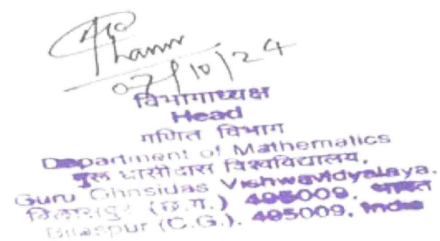 07/10/24
विभागाध्यक्ष
Head
गणित विभाग
Department of Mathematics
गुरु घासीदास विश्वविद्यालय,
Guru Ghasidas Vishwavidyalaya.
बिलासपुर (छ.ग.) 495009, भारत
Bilaspur (C.G.). 495009, India